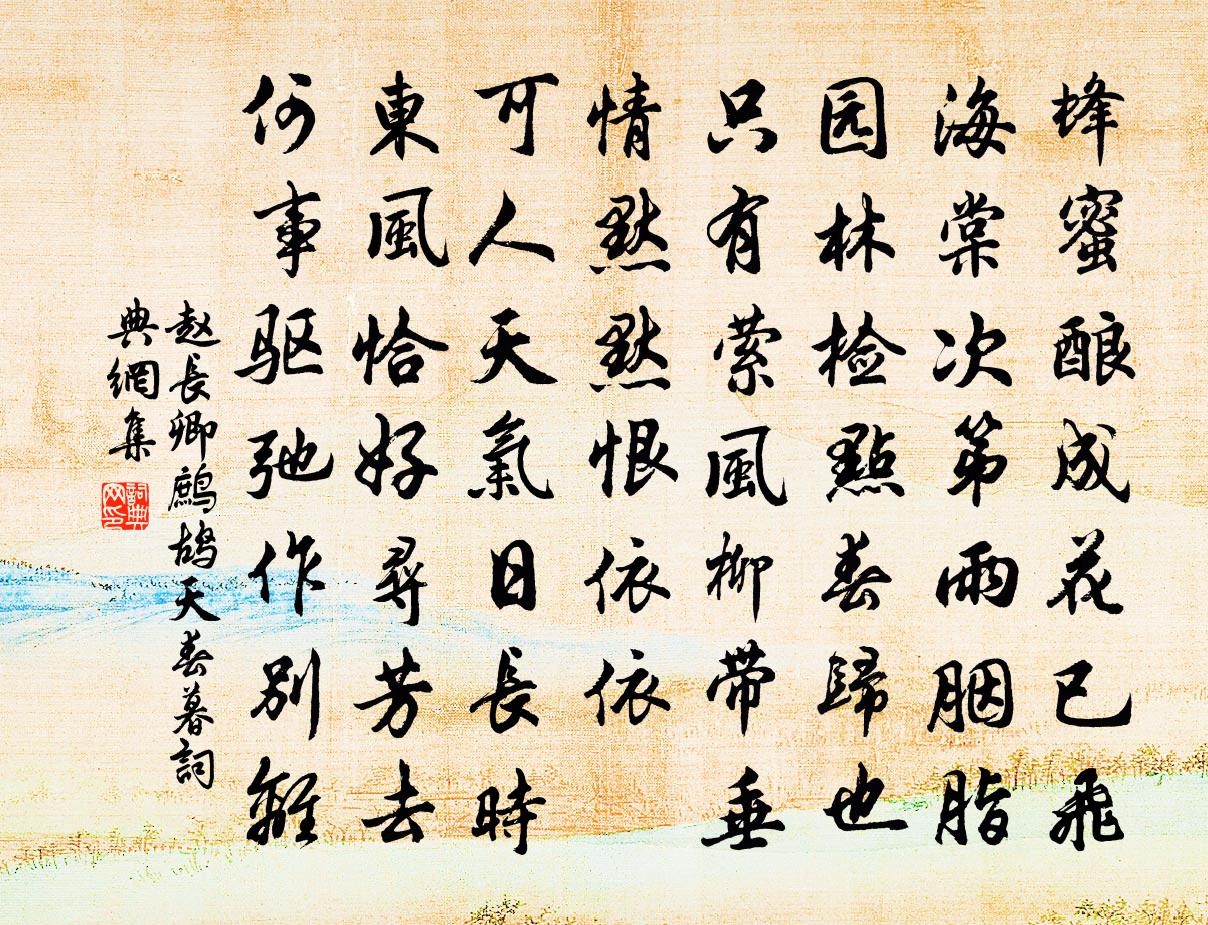 蜂蜜酿成花已飛
海棠次第雨胭脂
园林检點春歸也
只有萦風柳带垂
情黙黙恨依依
可人天氣日長時
東風恰好尋芳去
何事驱弛作别離
赵長卿鷓鴣天春暮詞
典網集
詞典网印